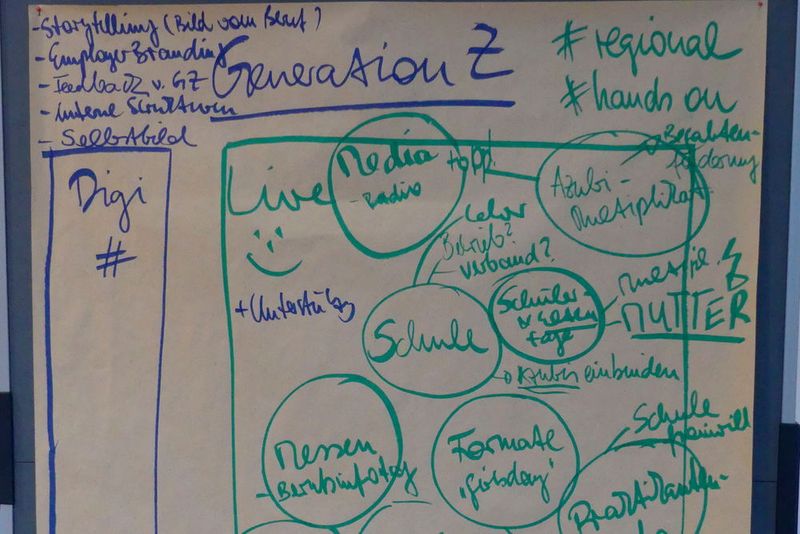 - Storytelling (Bild vom Beruf)
- Employer Branding
- Feedback v. GZ
- Interne Strukturen
- Selbstbild
Generation Z
#regional
#hands on
Digi
#
Live
+ Unterstützg
Media
- radio
Azubi-
multiplikat
Lehrer
Betrieb?
verband?
Schule
Schüler-
tage
MUTTER
Azubis einbinden
Messen
- Berufsinfotag
Formate
"Girlsday"
Schule
freiwill
Praktikanten-